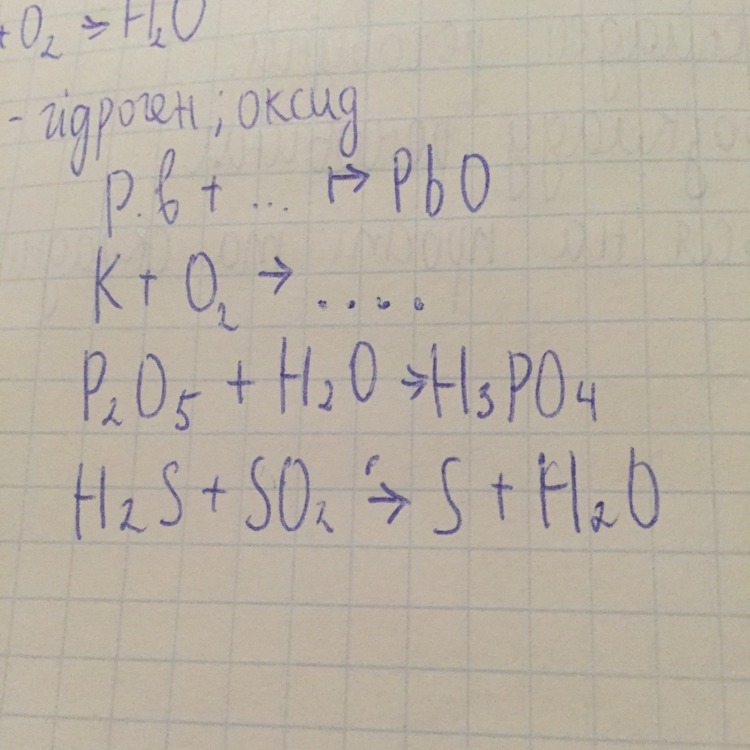 + O₂ → H₂O
- гідроген ; оксид
P.b + ... → PbO
K + O₂ → ....
P₂O₅ + H₂O → H₃PO₄
H₂S + SO₂ → S + H₂O